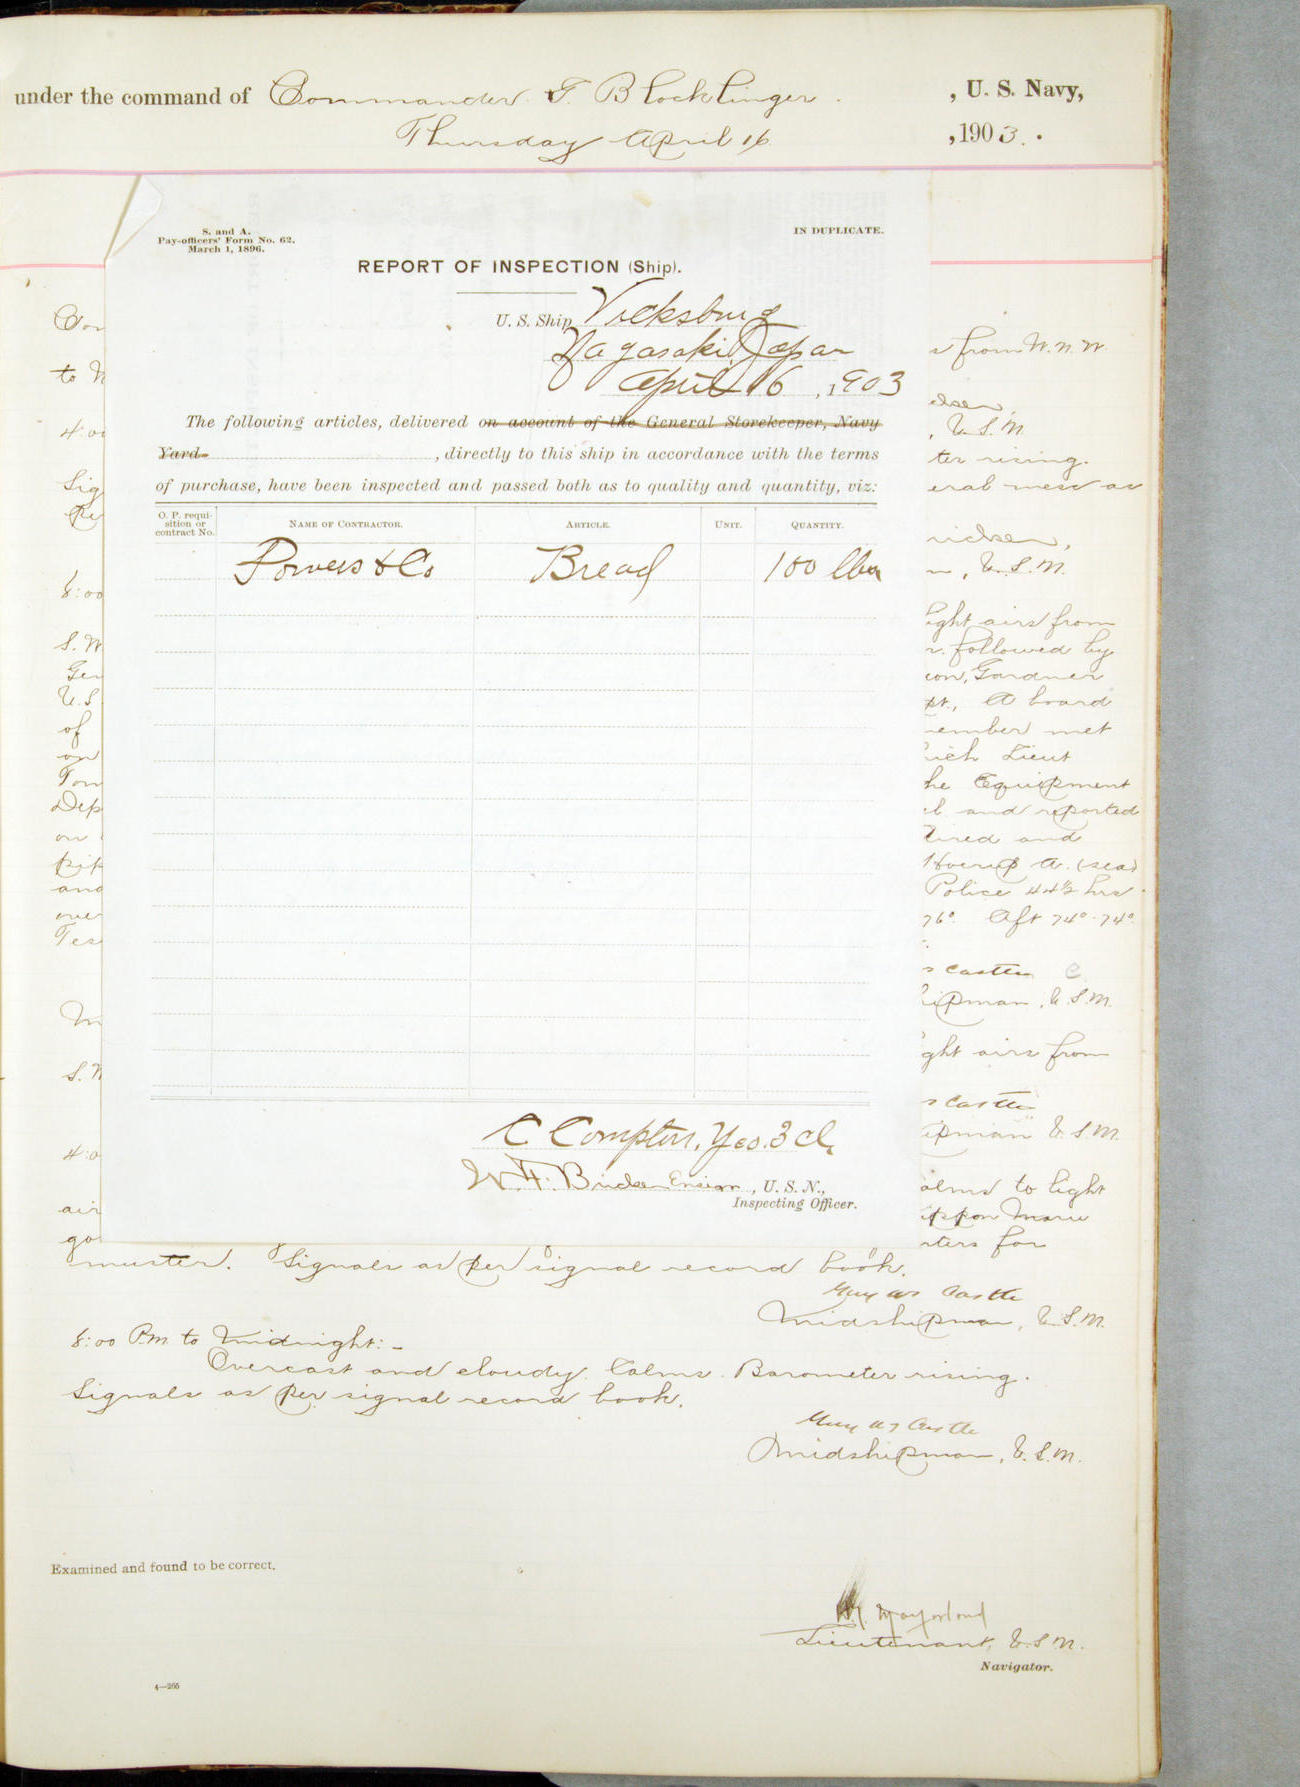 under the command of Commander G. Blocklinger , U. S. Navy,
Thursday April 16 , 1903.
S. and A.
Pay-officers' Form No. 62.
March 1, 1896.
IN DUPLICATE.
REPORT OF INSPECTION (Ship).
U. S. Ship Vicksburg
Nagasaki Japan
April 16 , 1903
The following articles, delivered on account of the General Storekeeper, Navy
Yard , directly to this ship in accordance with the terms
of purchase, have been inspected and passed both as to quality and quantity, viz:
O. P. requi-
sition or
contract No.
NAME OF CONTRACTOR. ARTICLE. UNIT. QUANTITY.
Powers & Co Bread 100 lbs
C Compton, Yeo. 3 cl.
W. F. Bricker Ensign , U. S. N.,
Inspecting Officer.
s from N. N. W.
to N
, U. S. N.
ter rising.
eral mess as
, U. S. N.
8:00
light airs from
S. W
followed by
Gen
Gardner
U. S.
A board
of
ember met
on
hich Lieut
he Equipment
Dep
and reported
on
tired and
and
Police 44½ hrs
over
76°. Aft 74°-74°
s Castle
hipman, U. S. N.
ght airs from
s Castle
hipman U. S. N.
alms to light
air
ippon Maru
rters for
muster. Signals as per signal record book.
Guy W S Castle
Midshipman, U. S. N.
8:00 P.M. to Midnight:-
Overcast and cloudy. Calms. Barometer rising.
Signals as per signal record book.
Guy W S Castle
Midshipman, U. S. N.
Examined and found to be correct.
Lieutenant, U. S. N.
Navigator.
4—265